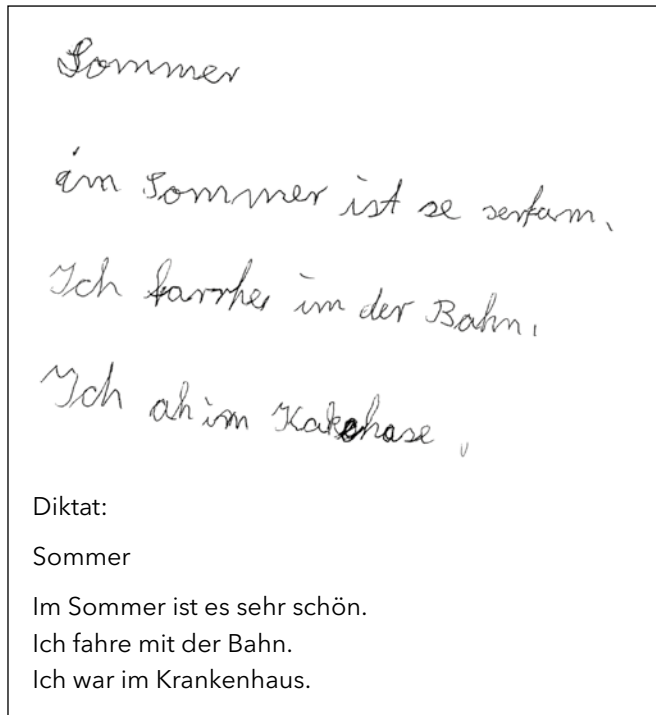 Sommer
im Sommer ist se serfam.
Ich farrhe im der Bahn.
Ich ah im Kakehase.
Diktat:
Sommer
Im Sommer ist es sehr schön.
Ich fahre mit der Bahn.
Ich war im Krankenhaus.